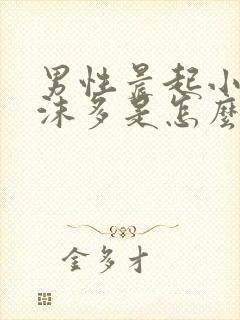 男性晨起小
沫多是怎麼
金多才